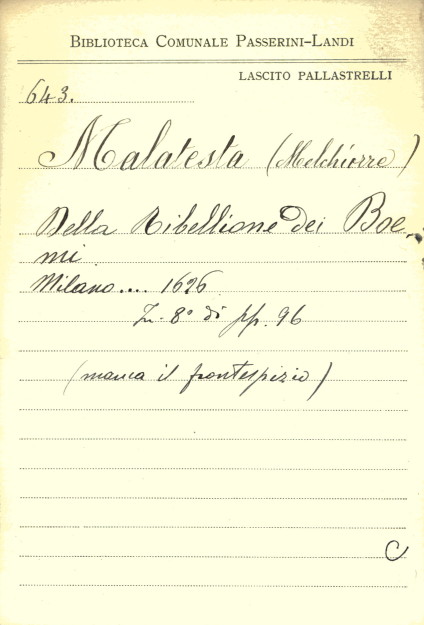 BIBLIOTECA COMUNALE PASSERINI-LANDI
LASCITO PALLASTRELLI
643.
Malatesta (Melchiorre)
Della Ribellione dei Boe-
mi
Milano.... 1626
In-8° di pp. 96
(manca il frontespizio)
C